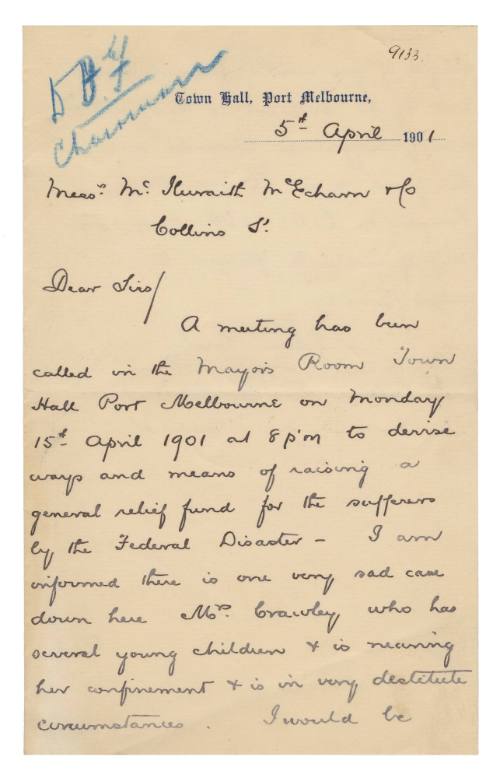 9133.
D B F
Chairman
Town Hall, Port Melbourne,
5th April 1901
Messrs. Mc. Ilwraith McEcharn & Co
Collins St.
Dear Sirs/
A meeting has been
called in the Mayor's Room Town
Hall Port Melbourne on Monday
15th April 1901 at 8 p'm to devise
ways and means of raising a
general relief fund for the sufferers
by the Federal Disaster - I am
informed there is one very sad case
down here Mrs. Crawley who has
several young children & is nearing
her confinement & is in very destitute
circumstances. I would be